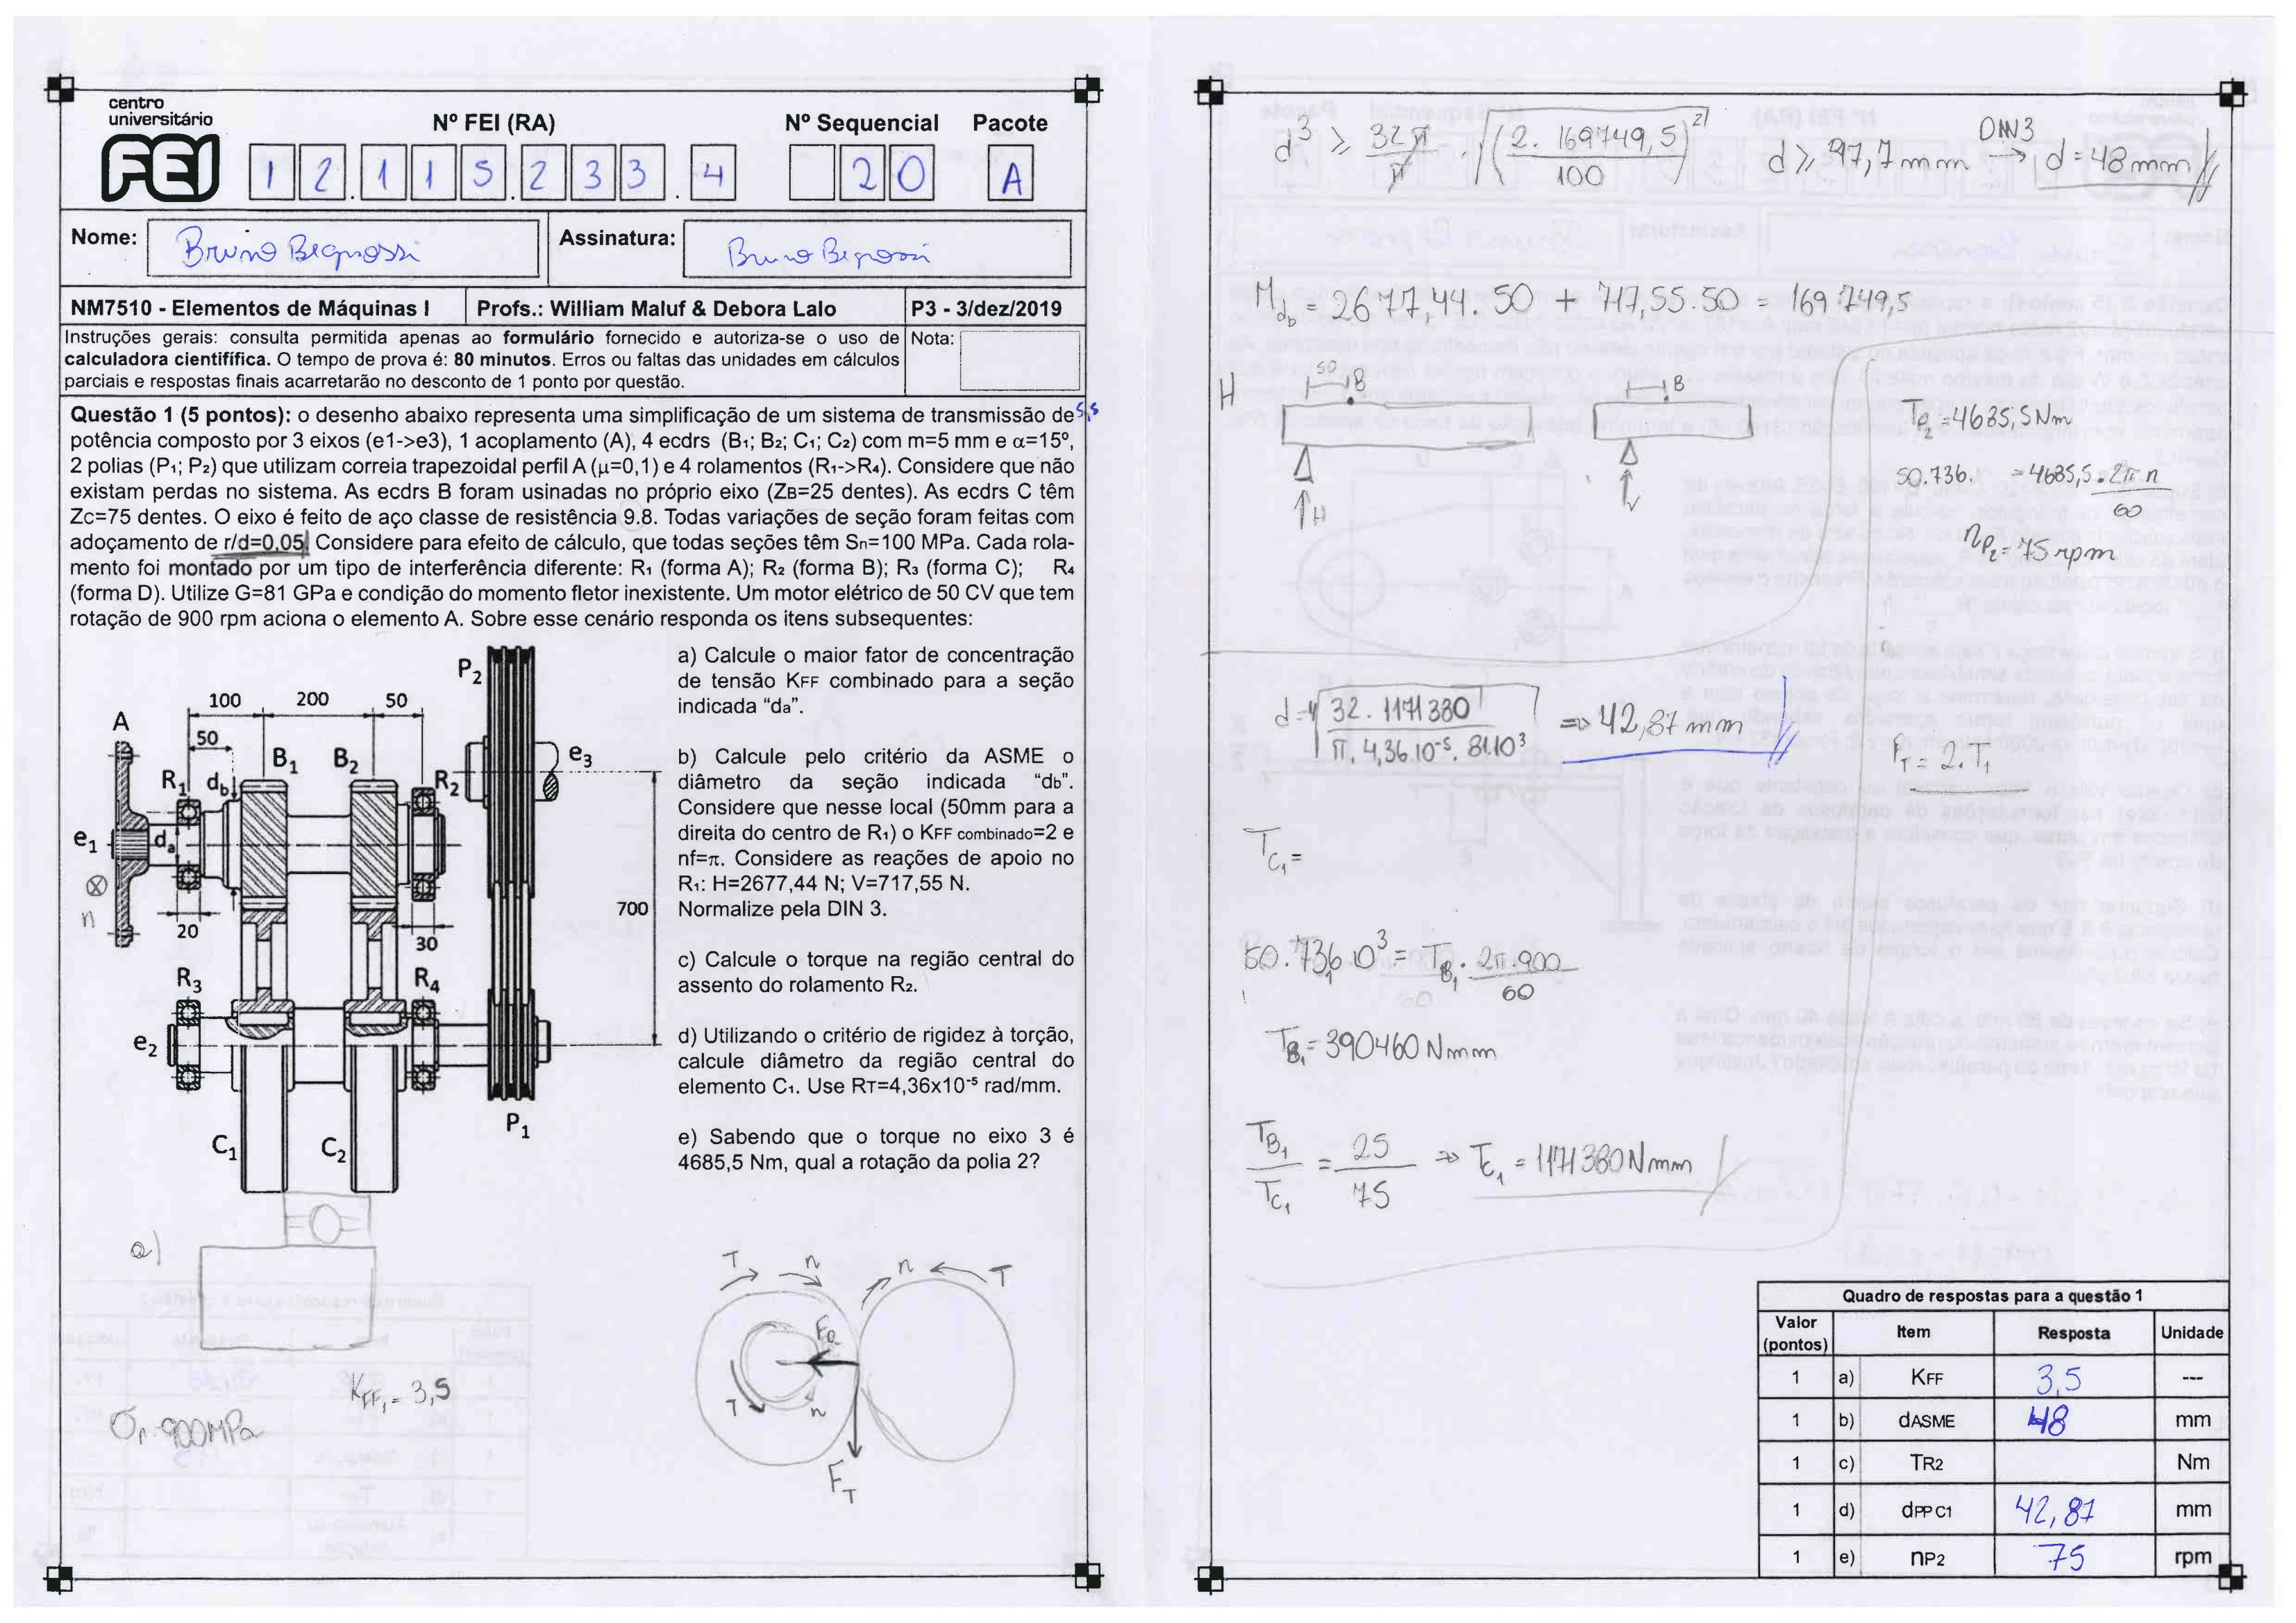 centro
universitário
FEI
Nº FEI (RA)
Nº Sequencial
Pacote
12.115.233.4
20
A
Nome: Bruno Begnossi
Assinatura: Bruno Begnossi
NM7510 - Elementos de Máquinas I
Profs.: William Maluf & Debora Lalo
P3 - 3/dez/2019
Instruções gerais: consulta permitida apenas ao formulário fornecido e autoriza-se o uso de
calculadora cientifífica. O tempo de prova é: 80 minutos. Erros ou faltas das unidades em cálculos
parciais e respostas finais acarretarão no desconto de 1 ponto por questão.
Nota:
Questão 1 (5 pontos): o desenho abaixo representa uma simplificação de um sistema de transmissão de
potência composto por 3 eixos (e1->e3), 1 acoplamento (A), 4 ecdrs (B1; B2; C1; C2) com m=5 mm e α=15º,
2 polias (P1; P2) que utilizam correia trapezoidal perfil A (μ=0,1) e 4 rolamentos (R1->R4). Considere que não
existam perdas no sistema. As ecdrs B foram usinadas no próprio eixo (ZB=25 dentes). As ecdrs C têm
Zc=75 dentes. O eixo é feito de aço classe de resistência 9.8. Todas variações de seção foram feitas com
adoçamento de r/d=0,05. Considere para efeito de cálculo, que todas seções têm Sn=100 MPa. Cada rola-
mento foi montado por um tipo de interferência diferente: R1 (forma A); R2 (forma B); R3 (forma C); R4
(forma D). Utilize G=81 GPa e condição do momento fletor inexistente. Um motor elétrico de 50 CV que tem
rotação de 900 rpm aciona o elemento A. Sobre esse cenário responda os itens subsequentes:
5,5
P2
100 200 50
A
50
B1 B2
e3
R1 db
R2
e1
da
n
700
20
30
R3
R4
e2
P1
C1 C2
a) Calcule o maior fator de concentração
de tensão KFF combinado para a seção
indicada "da".
b) Calcule pelo critério da ASME o
diâmetro da seção indicada "db".
Considere que nesse local (50mm para a
direita do centro de R1) o KFF combinado=2 e
nf=π. Considere as reações de apoio no
R1: H=2677,44 N; V=717,55 N.
Normalize pela DIN 3.
c) Calcule o torque na região central do
assento do rolamento R2.
d) Utilizando o critério de rigidez à torção,
calcule diâmetro da região central do
elemento C1. Use RT=4,36x10-5 rad/mm.
e) Sabendo que o torque no eixo 3 é
4685,5 Nm, qual a rotação da polia 2?
a)
KFF1 = 3,5
σr = 900MPa
T n n T
FR
T n
FT
d³ ≥ 32π/π . √(2. 169749,5/100)²
d ≥ 47,7mm → DIN3 d = 48mm
Mdb = 2677,44.50 + 717,55.50 = 169749,5
H 50 B B
H V
TP2 = 4685,5Nm
50.736. = 4685,5.2π n/60
nP2 = 75rpm
d = 4√32.1171380/π.4,36.10-5.81.10³ => 42,87mm
FT = 2.T1
TC1 =
50.736.10³ = TB1 . 2π.900/60
TB1 = 390460Nmm
TB1/TC1 = 25/75 => TC1 = 1171380Nmm
Quadro de respostas para a questão 1
Valor (pontos) Item Resposta Unidade
1 a) KFF 3,5 ---
1 b) dASME 48 mm
1 c) TR2 Nm
1 d) dPP C1 42,87 mm
1 e) nP2 75 rpm